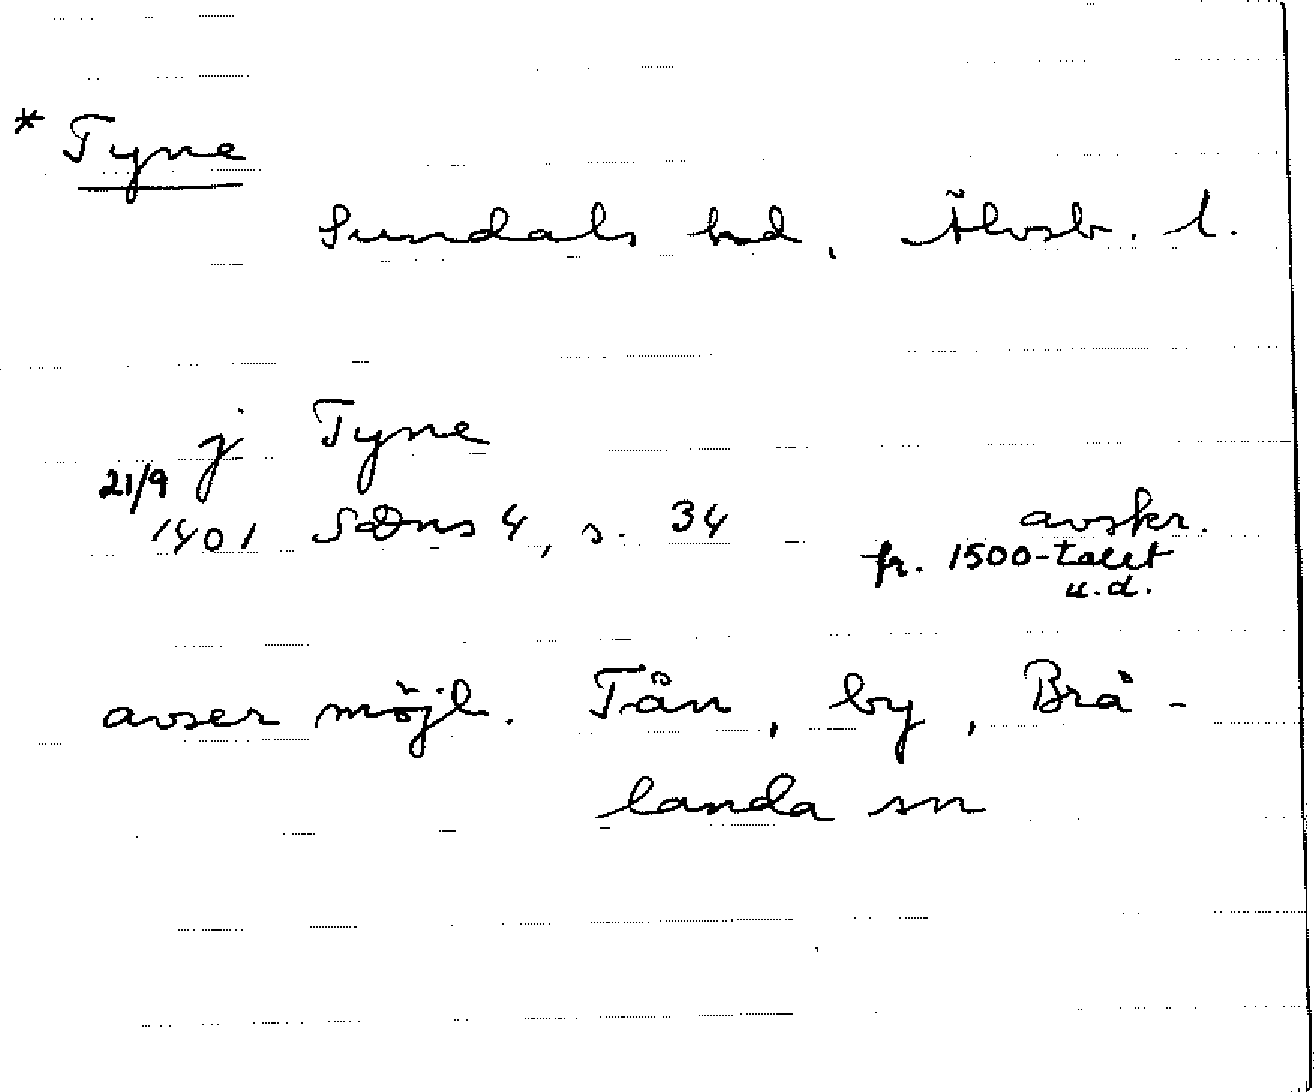 * Tyne
Sundals hd, Älvsb. l.
j Tyne
21/9
1401 SDns 4, s. 34 avskr.
fr. 1500-talet
u.d.
avser möjl. Tån, by, Brå-
landa sn